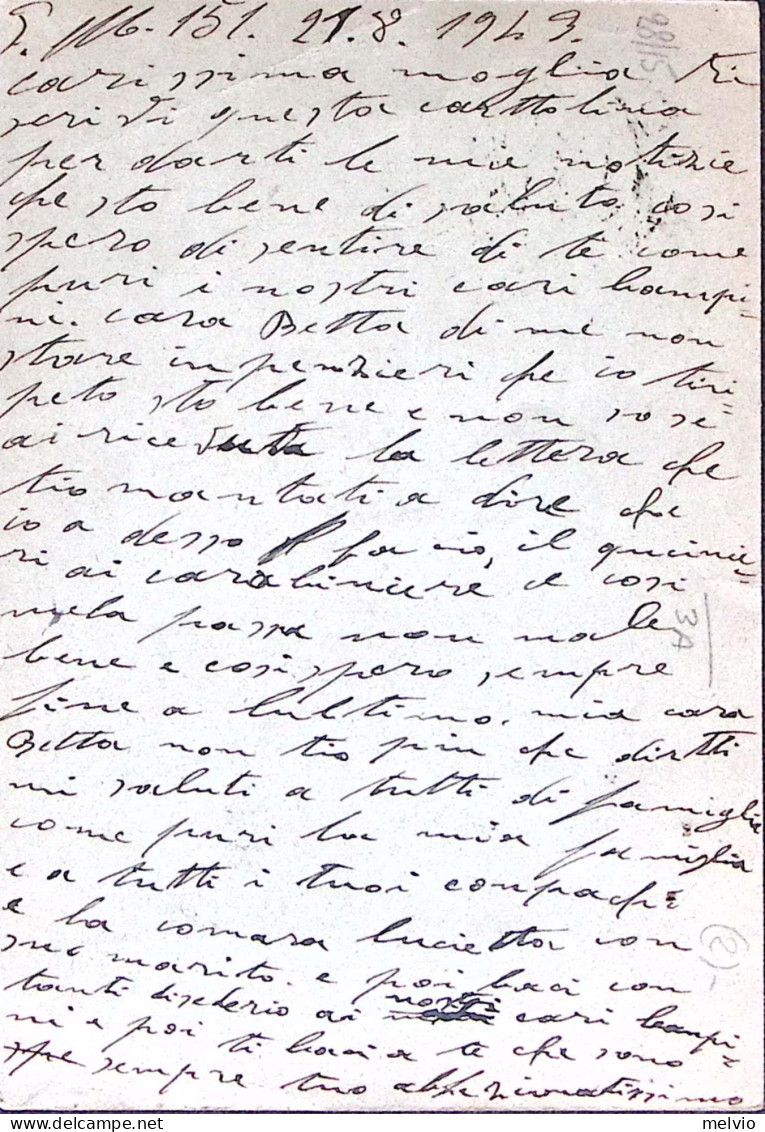 P.M. 151. 21.8.1943.
carissima moglia ti
scrivi questa carttolina
per darti le mie notizie
che sto bene di saluto cosi
spero di sentire di te come
puri i nostri cari banpi-
ni. cara Betta di me non
stare in penzieri che io tiri-
peto sto bene e non so se
ai ricevuta la lettera che
tio mantati a dire che
io a desso facio, il qucinie-
ri ai carabiniere e cosi
mela passa non male
bene e cosi spero sempre
fine a lultimo. mia cara
Betta non tio piu che dirtti
mi saluti a tutti di famiglia
come puri la mia famiglia
e a tutti i tuoi conpach-
e la comara lucietta con
suo marito. e poi baci con
tanti disederio ai nostri cari banpi-
ni e poi ti bacia te che sono
sempre tuo abfezionatissimo
28/5
3A
(2)-
melvio